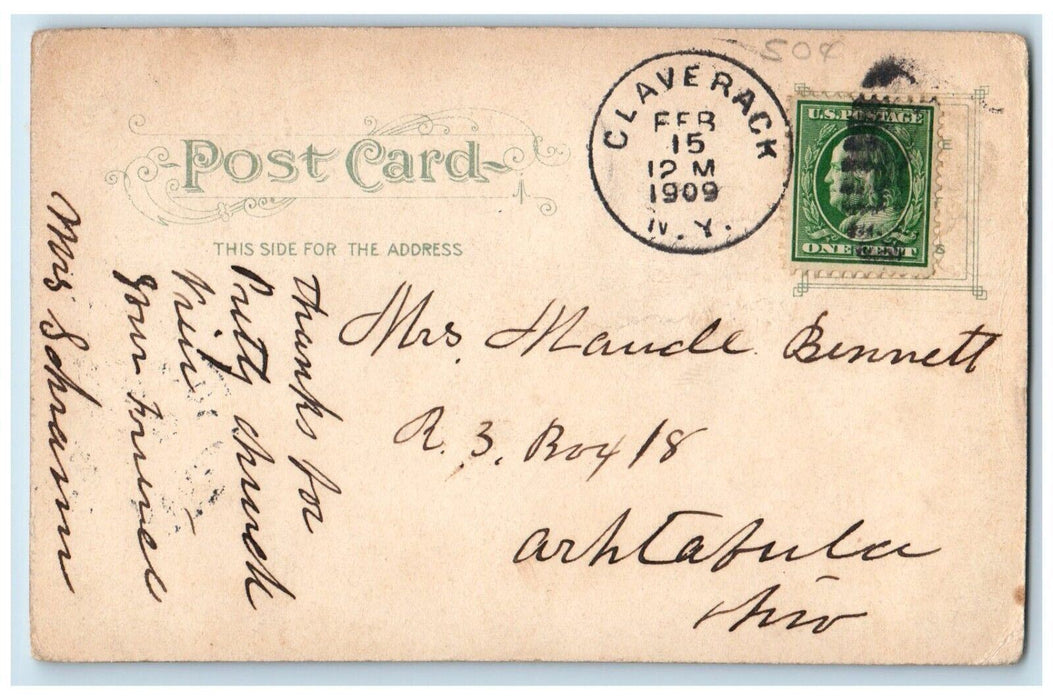 504
CLAVERACK
FEB
15
12 M
1909
N.Y.
U.S. POSTAGE
ONE CENT
Post Card
THIS SIDE FOR THE ADDRESS
Mrs. Maude Bennett
R. 3. Box 18
Ashtabula
Ohio
Thanks for
Pretty church
View
your friend
Mrs Schramm